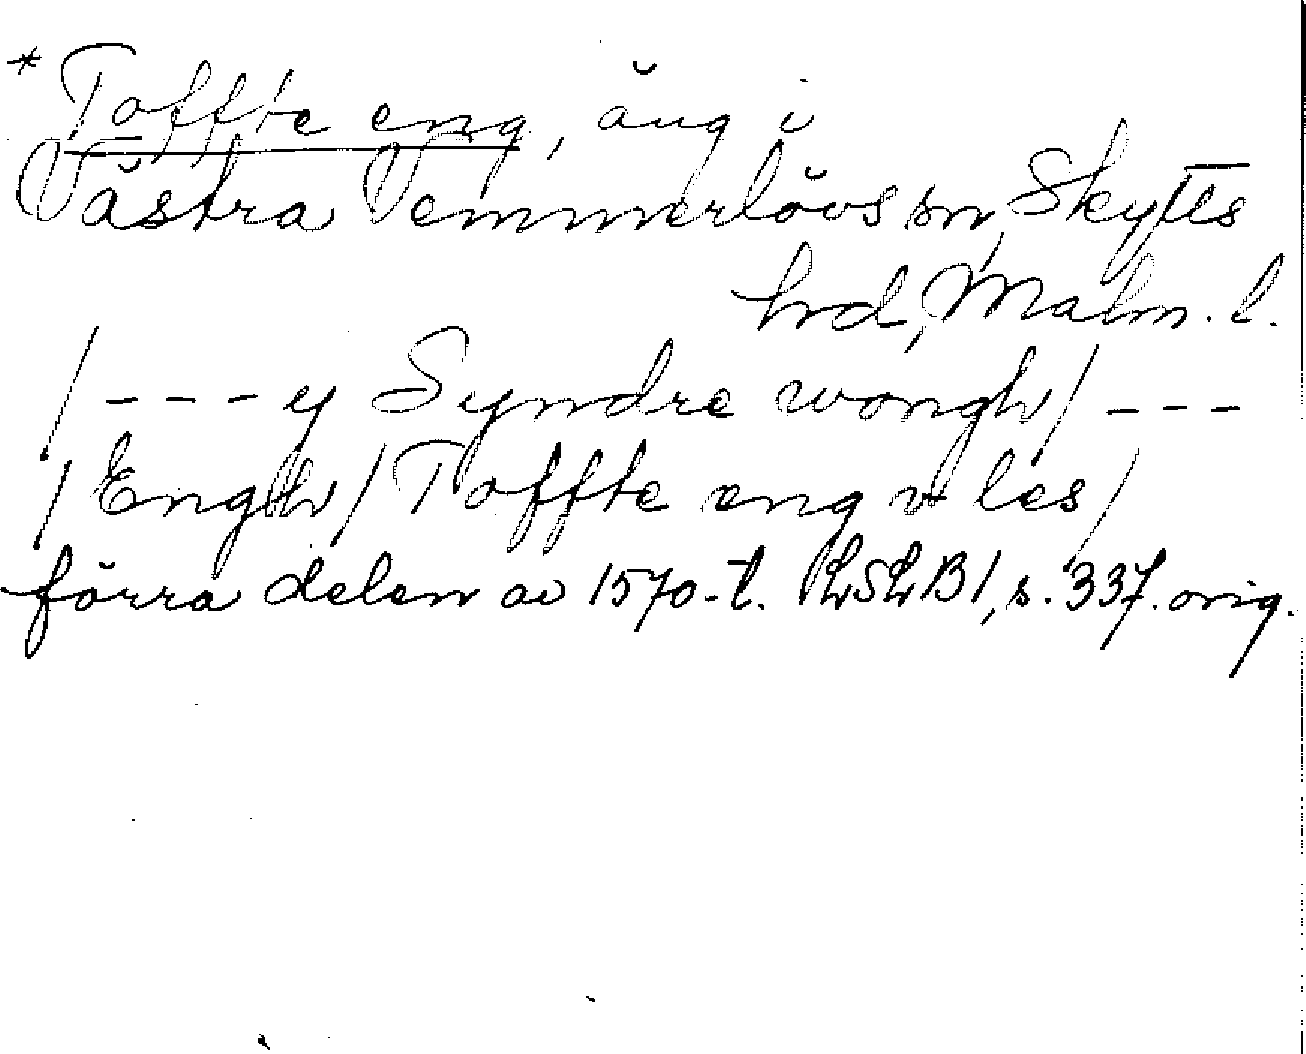 * Toffte eng, äng i
Västra Vemmerlövs sn, Skytts
hrd, Malm. l.
/ - - - y Syndre wongh / - - -
/ Engh / Toffte eng v les /
förra delen av 1570-t. LSLB1, s. 337. orig.